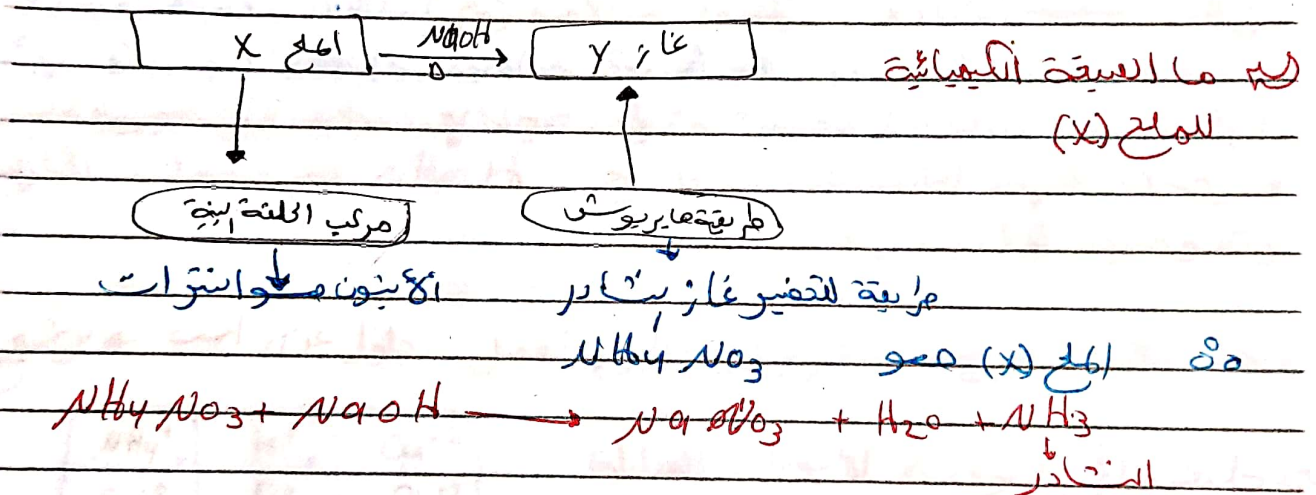 الملح X NaOH Δ غاز Y
س/ ما الصيغة الكيميائية
للملح (X)
مركب الحلقة البنية طريقة هابر بوش
الأنيون هو النترات طريقة لتحضير غاز نشادر
∴ الملح (X) هو NH4NO3
NH4NO3 + NaOH → NaNO3 + H2O + NH3
النشادر